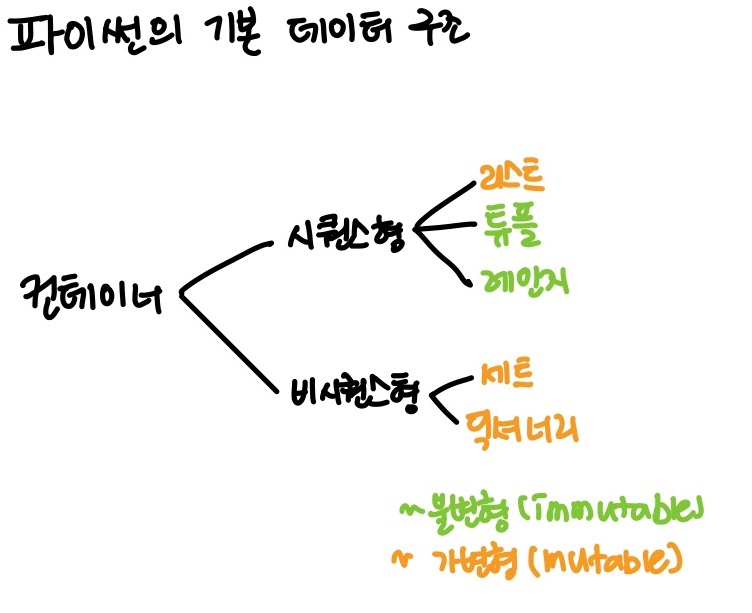 파이썬의 기본 데이터 구조
리스트
시퀀스형
튜플
레인지
컨테이너
비시퀀스형
세트
딕셔너리
~불변형(immutable)
~ 가변형(mutable)